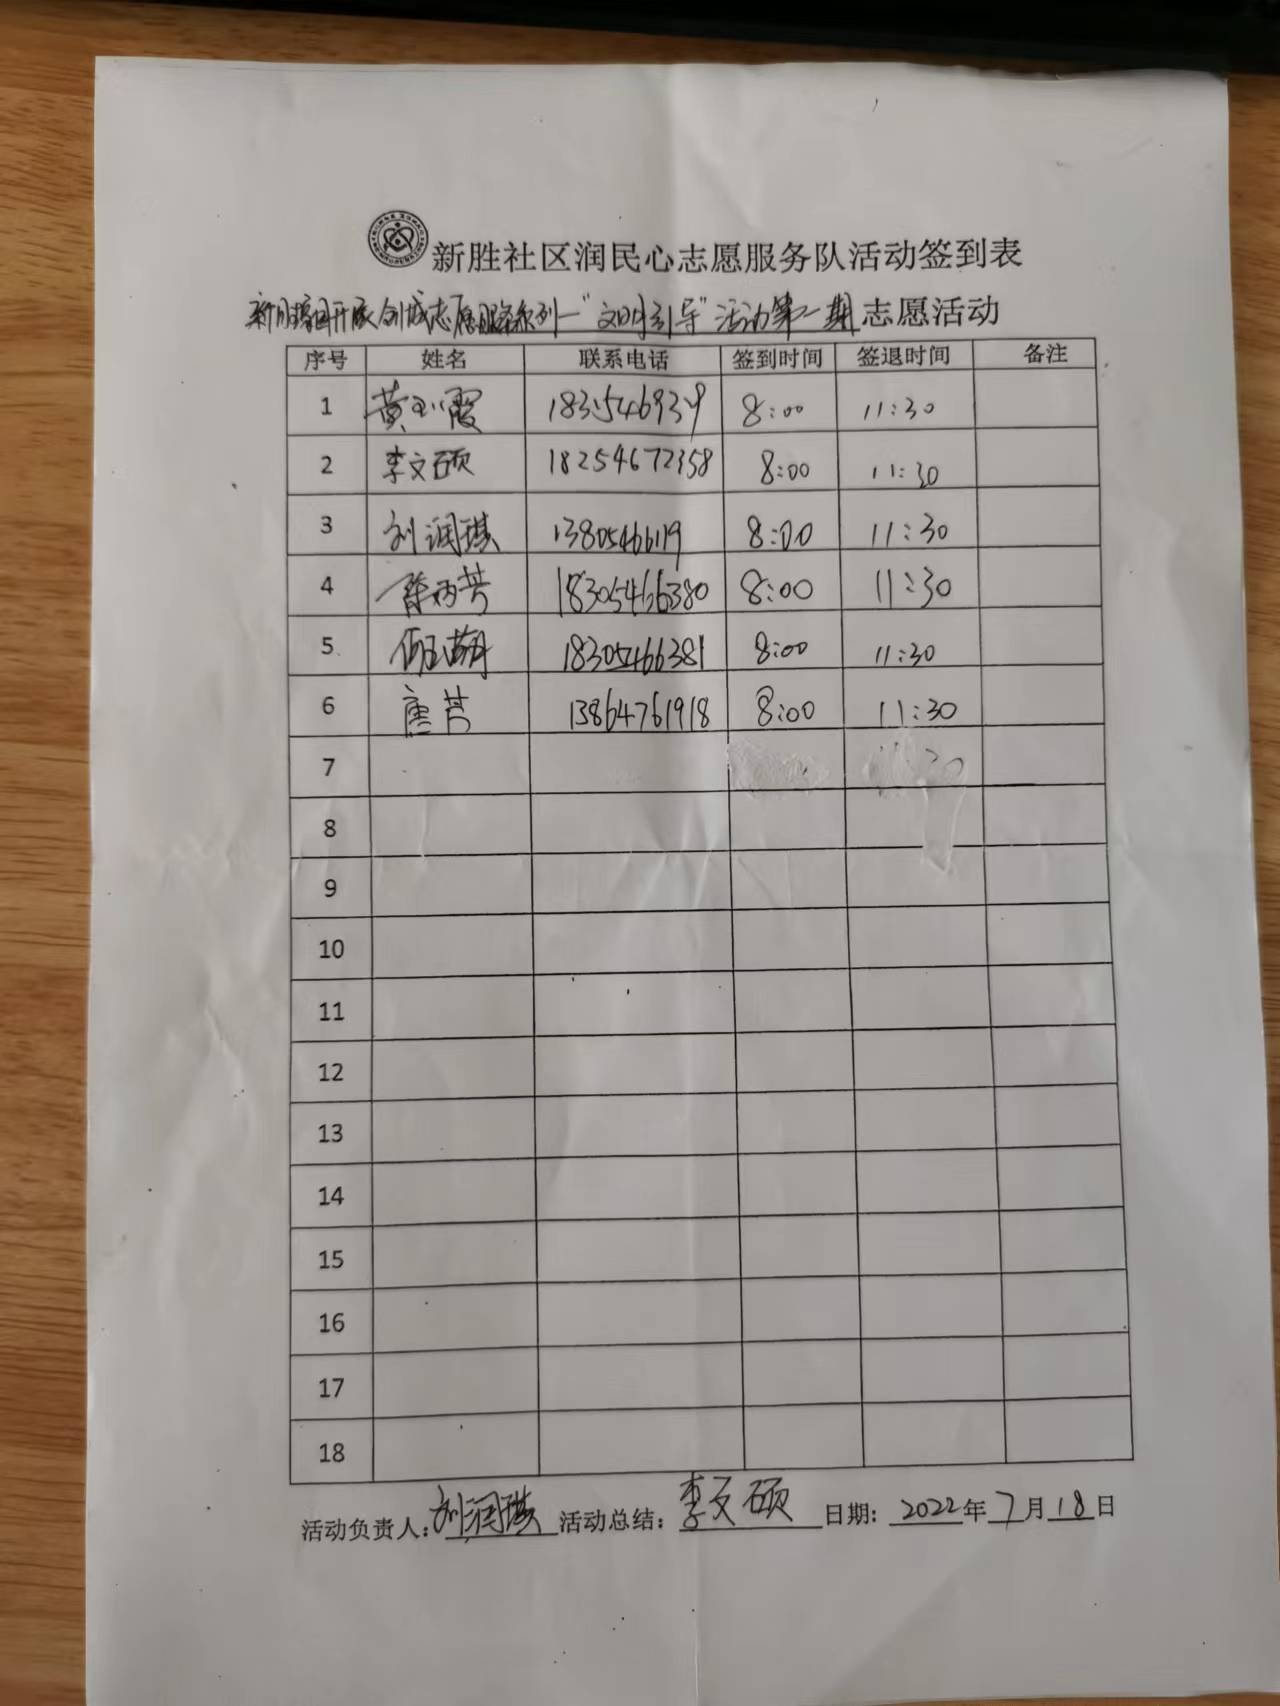 新胜社区润民心志愿服务队活动签到表
开展创城志愿服务系列一"文明引导"活动第一期志愿活动
序号 姓名 联系电话 签到时间 签退时间 备注
1 黄 霞 8:00 11:30
2 李文硕 18254672358 8:00 11:30
3 刘润琪 8:00 11:30
4 芳 18305466380 8:00 11:30
5 18305466381 8:00 11:30
6 唐芳 13864761918 8:00 11:30
7
8
9
10
11
12
13
14
15
16
17
18
活动负责人:刘润琪 活动总结:李文硕 日期:2022年7月18日